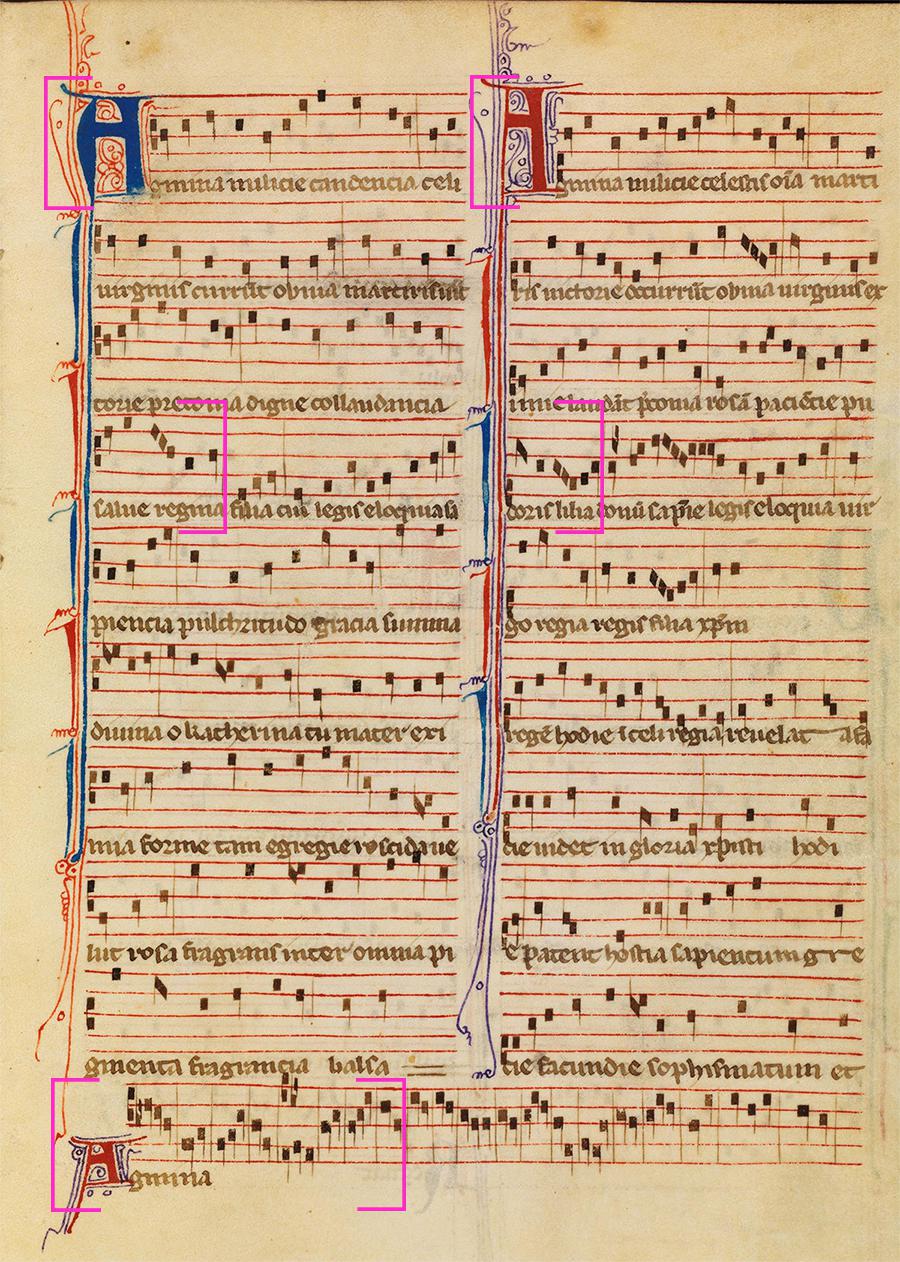 Agmina milicie candencia celi
virginis currunt obvia martiris vict
corie preconia digne collaudancia
salve regina filia cui legis eloquia sa
piencia pulchritudo gracia summa
divina o katherina tu mater exi
mia forme tam egregie roscida ve
lut rosa fragrans inter omnia pi
gmenta fragrancia balsa
Agmina milicie celestis oia marti
ris victorie occurrut obvia virginis ex
imie laudat pconia rosa paciecie pu
doris lilia sapie legis eloquia vir
go regia regis filia xpm
rege hodie i celi regia revelat a fa
cie videt in gloria xpisti hodi
e patent hostia sapientum gre
cie facundie sophismatum et
Agmina